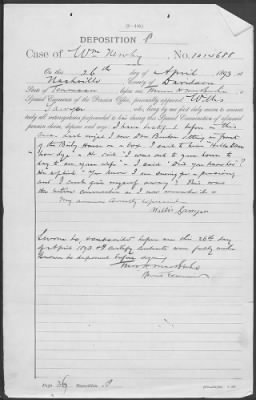 (3-446)
DEPOSITION P
Case of Wm Newby, No. 1014688
On this 26th day of April, 1893, at
Nashville, County of Davidson
State of Tennessee, before me,
Special Examiner of the Pension Office, personally appeared Willis
Sawyer, who, being by me first duly sworn to answer
truly all interrogatories propounded to him during this Special Examination of aforesaid
pension claim, deposes and says: I have testified before in this
case. Last night I saw Dan Benton sitting in front
of the
on a box. I said to him "Hello Dan
how dye" &c He said "I was out to your house to
day to see your wife" &c I said "Did you know her?"
He replied "You know I am swearing for a pension
and I can't give myself away". This was
the entire conversation as I now remember it
My answers correctly represented
Willis Sawyer
Sworn to, & subscribed before me this 26th day
of April 1893 & I certify contents were fully made
known to deponent before signing
Special Examiner
Page 369 Deposition P